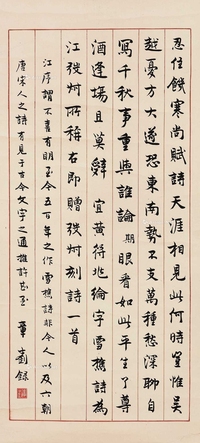 忍住饑寒尚賦詩天涯相見此何時豈惟吳
越憂方大還恐東南勢不支萬種愁深聊自
寫千秋事重與誰論期眼看如此平生了尊
酒逢場且莫辭 宜黃符兆綸字雪樵詩為
江弢叔所稱右即贈弢叔刻詩一首
江序謂不書有明至今五百年之作雪樵詩非今人以及六朝
唐宋人之詩有見于古今文字之通推許甚至